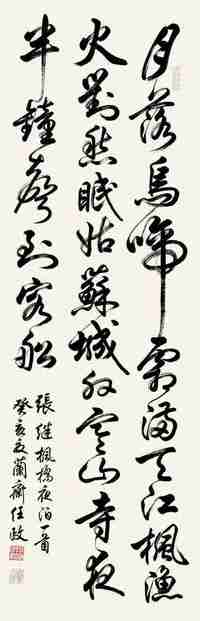 月落烏啼霜滿天江楓漁
火對愁眠姑蘇城外寒山寺夜
半鐘聲到客船
張繼楓橋夜泊一首
癸亥夏蘭齋任政